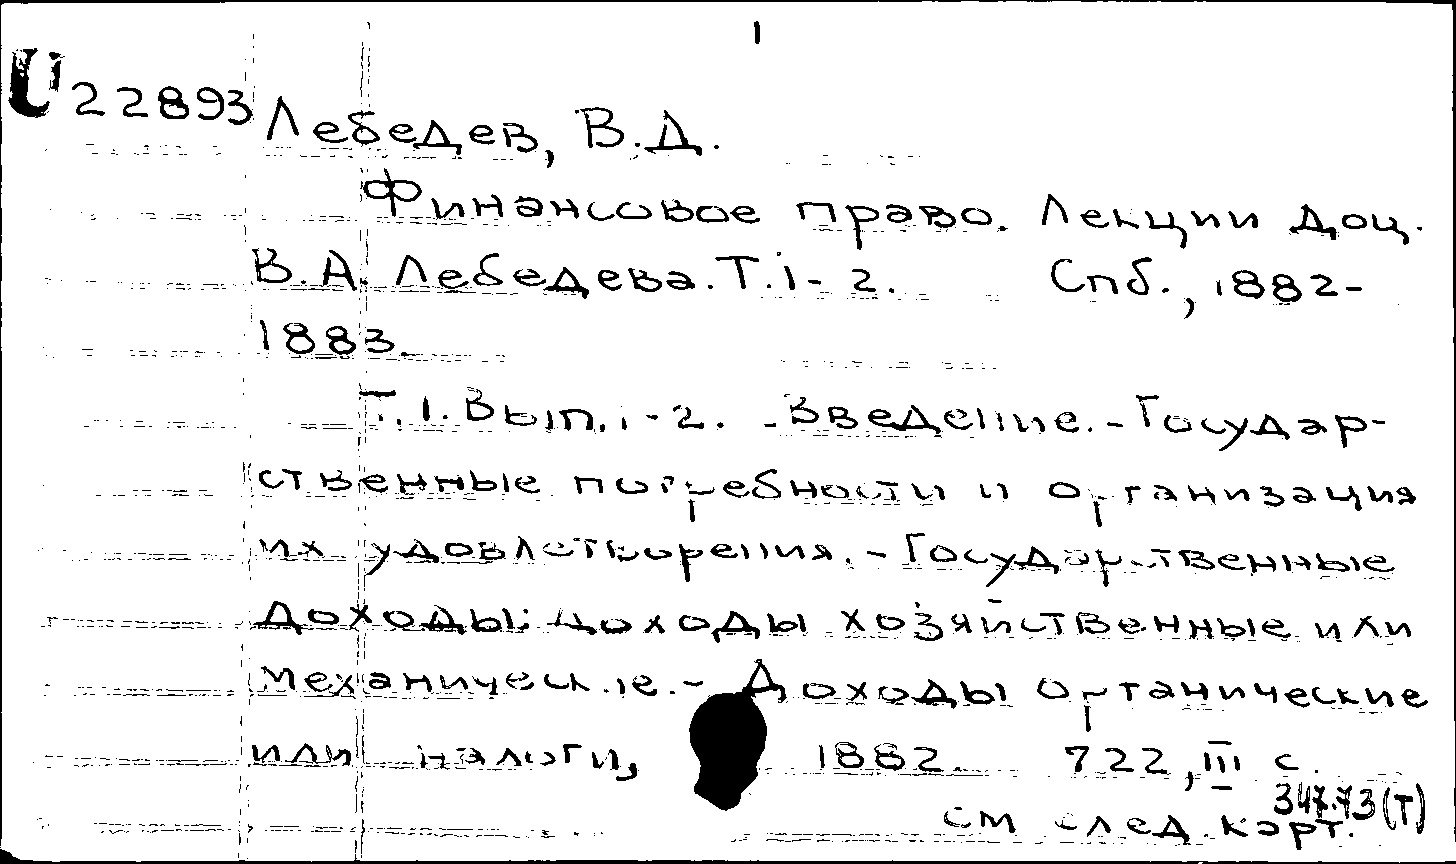 1
U 22893 Лебедев, В.Д.
Финансовое право. Лекции доц.
В.А. Лебедева. Т.1-2. Спб., 1882-
1883.
Т.1. Вып.1-2. - Введение. - Государ-
ственные потребности и организация
их удовлетворения. - Государственные
доходы: доходы хозяйственные или
механические. - Доходы органические
или налоги, 1882. 722, III с.
347.73(Т)
см след. карт.